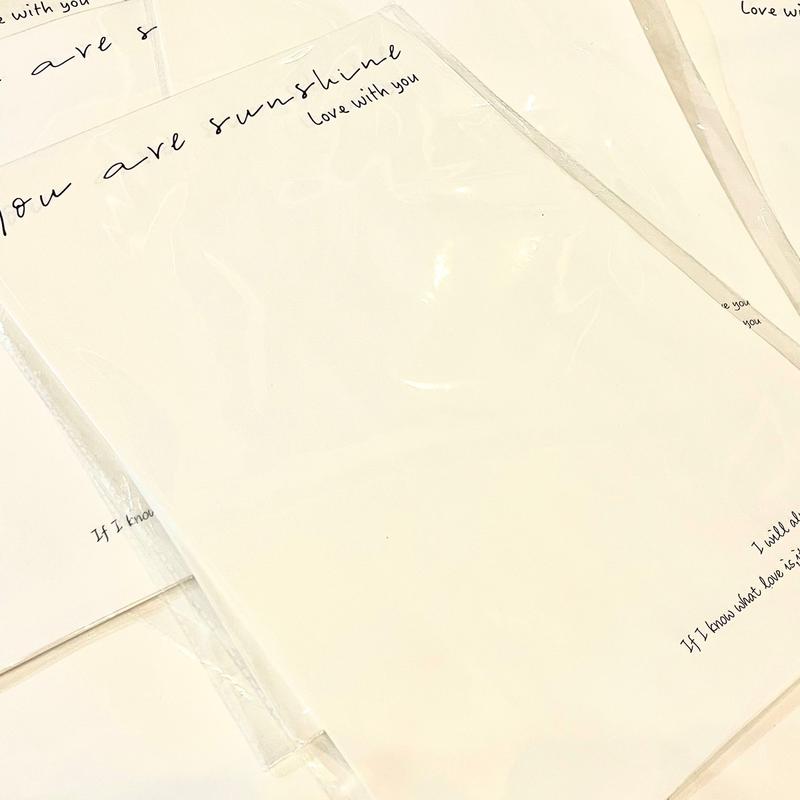 e with you
Love wi
are s
you are sunshine
Love with you
e you
you
If I know
I will al
If I know what love is,i